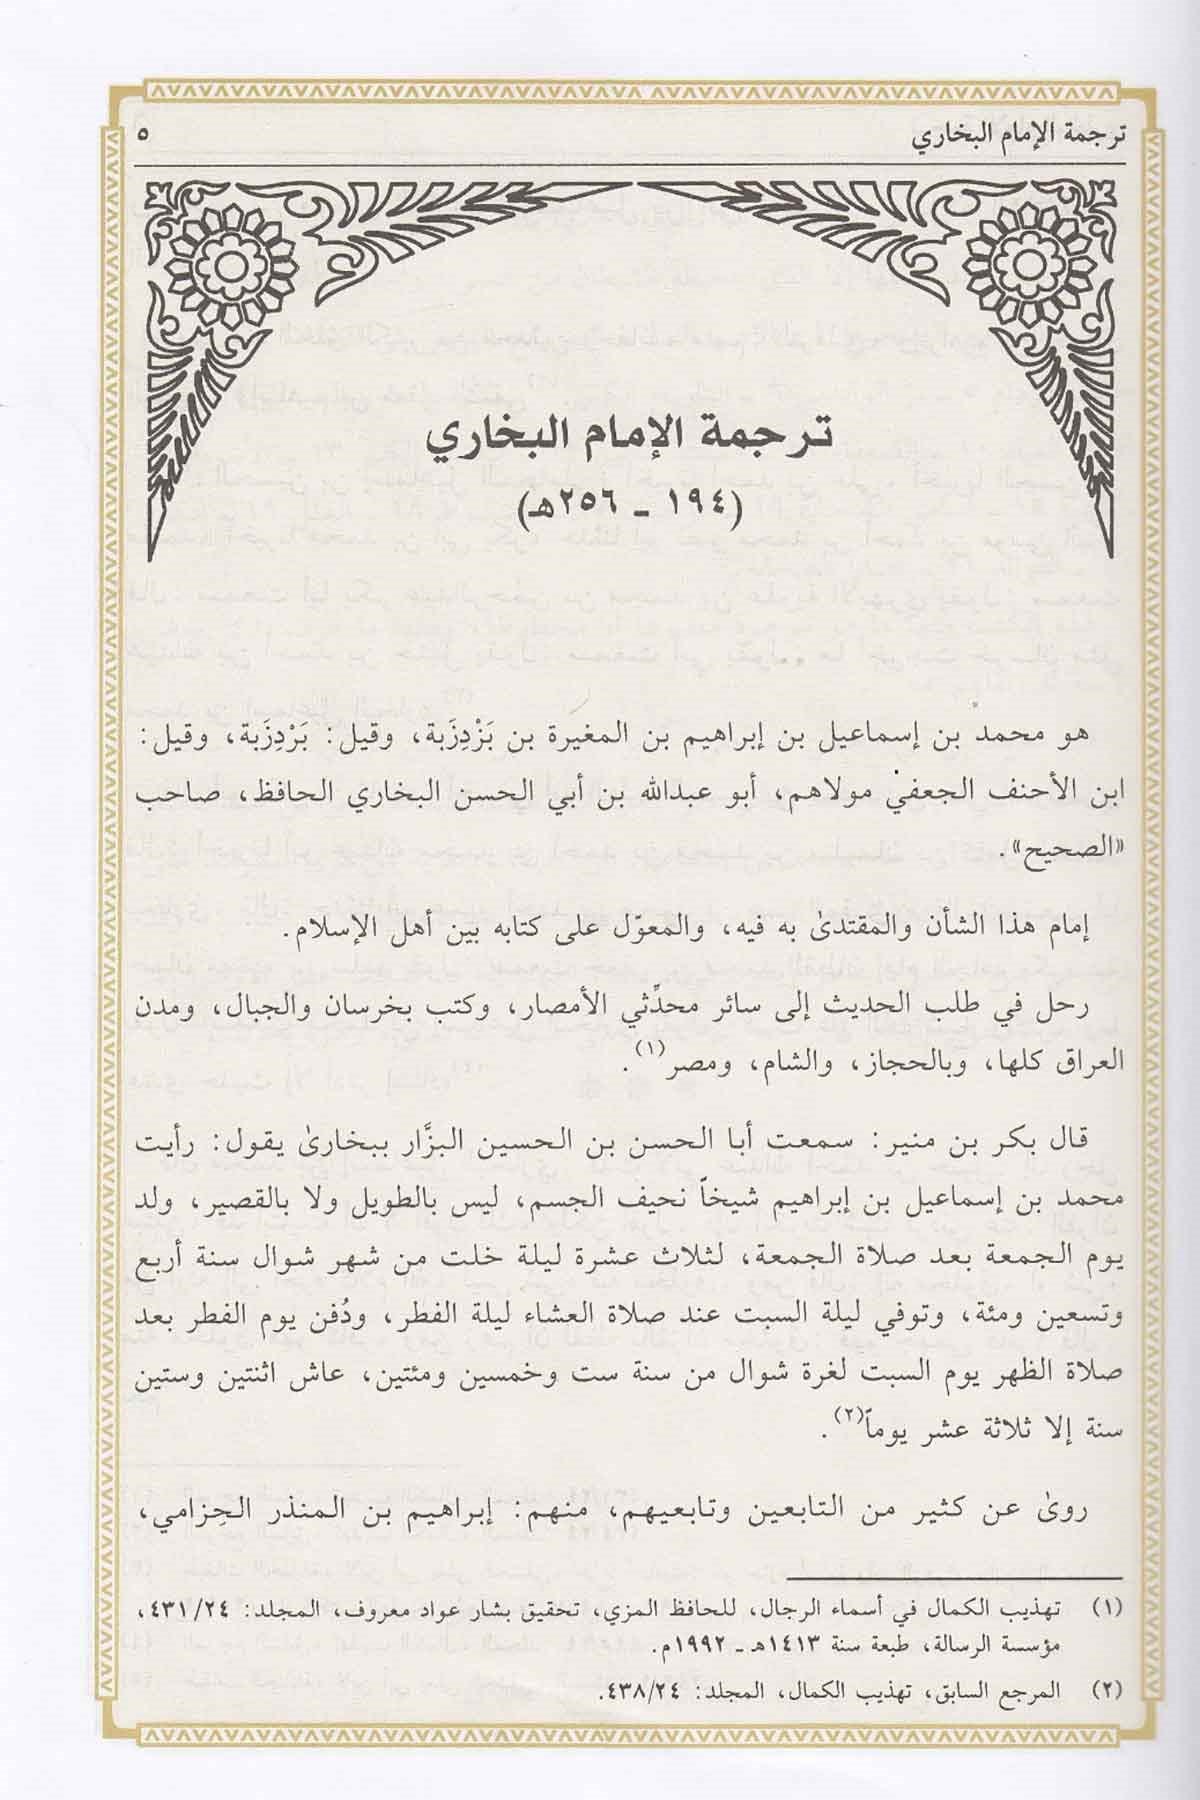 ترجمة الإمام البخاري
٥
ترجمة الإمام البخاري
(١٩٤ ـ ٢٥٦هـ)
هو محمد بن إسماعيل بن إبراهيم بن المغيرة بن بَزْدِزَبة، وقيل: بَرْدِزَبة، وقيل:
ابن الأحنف الجعفي مولاهم، أبو عبدالله بن أبي الحسن البخاري الحافظ، صاحب
«الصحيح».
إمام هذا الشأن والمقتدىٰ به فيه، والمعوّل على كتابه بين أهل الإسلام.
رحل في طلب الحديث إلى سائر محدِّثي الأمصار، وكتب بخرسان والجبال، ومدن
العراق كلها، وبالحجاز، والشام، ومصر(١).
قال بكر بن منير: سمعت أبا الحسن بن الحسين البزَّار ببخارىٰ يقول: رأيت
محمد بن إسماعيل بن إبراهيم شيخاً نحيف الجسم، ليس بالطويل ولا بالقصير، ولد
يوم الجمعة بعد صلاة الجمعة، لثلاث عشرة ليلة خلت من شهر شوال سنة أربع
وتسعين ومئة، وتوفي ليلة السبت عند صلاة العشاء ليلة الفطر، ودُفن يوم الفطر بعد
صلاة الظهر يوم السبت لغرة شوال من سنة ست وخمسين ومئتين، عاش اثنتين وستين
سنة إلا ثلاثة عشر يوماً(٢).
روىٰ عن كثير من التابعين وتابعيهم، منهم: إبراهيم بن المنذر الحِزامي،
(١) تهذيب الكمال في أسماء الرجال، للحافظ المزي، تحقيق بشار عواد معروف، المجلد: ٤٣١/٢٤،
مؤسسة الرسالة، طبعة سنة ١٤١٣هـ ـ ١٩٩٢م.
(٢) المرجع السابق، تهذيب الكمال، المجلد: ٤٣٨/٢٤.